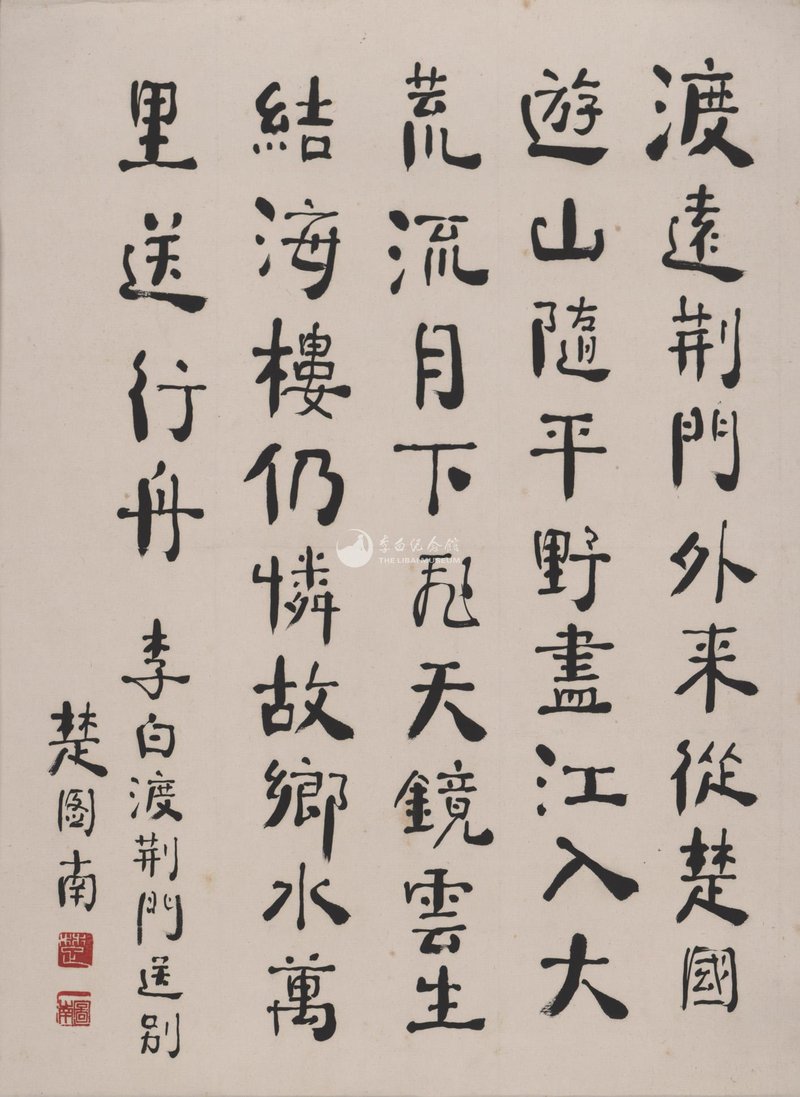 渡遠荆門外来從楚國
遊山隨平野盡江入大
荒流月下飛天鏡雲生
結海樓仍憐故鄉水萬
里送行舟
李白渡荆門送别
楚图南
楚
圖南
李白纪念馆
THE LIBAI MUSEUM